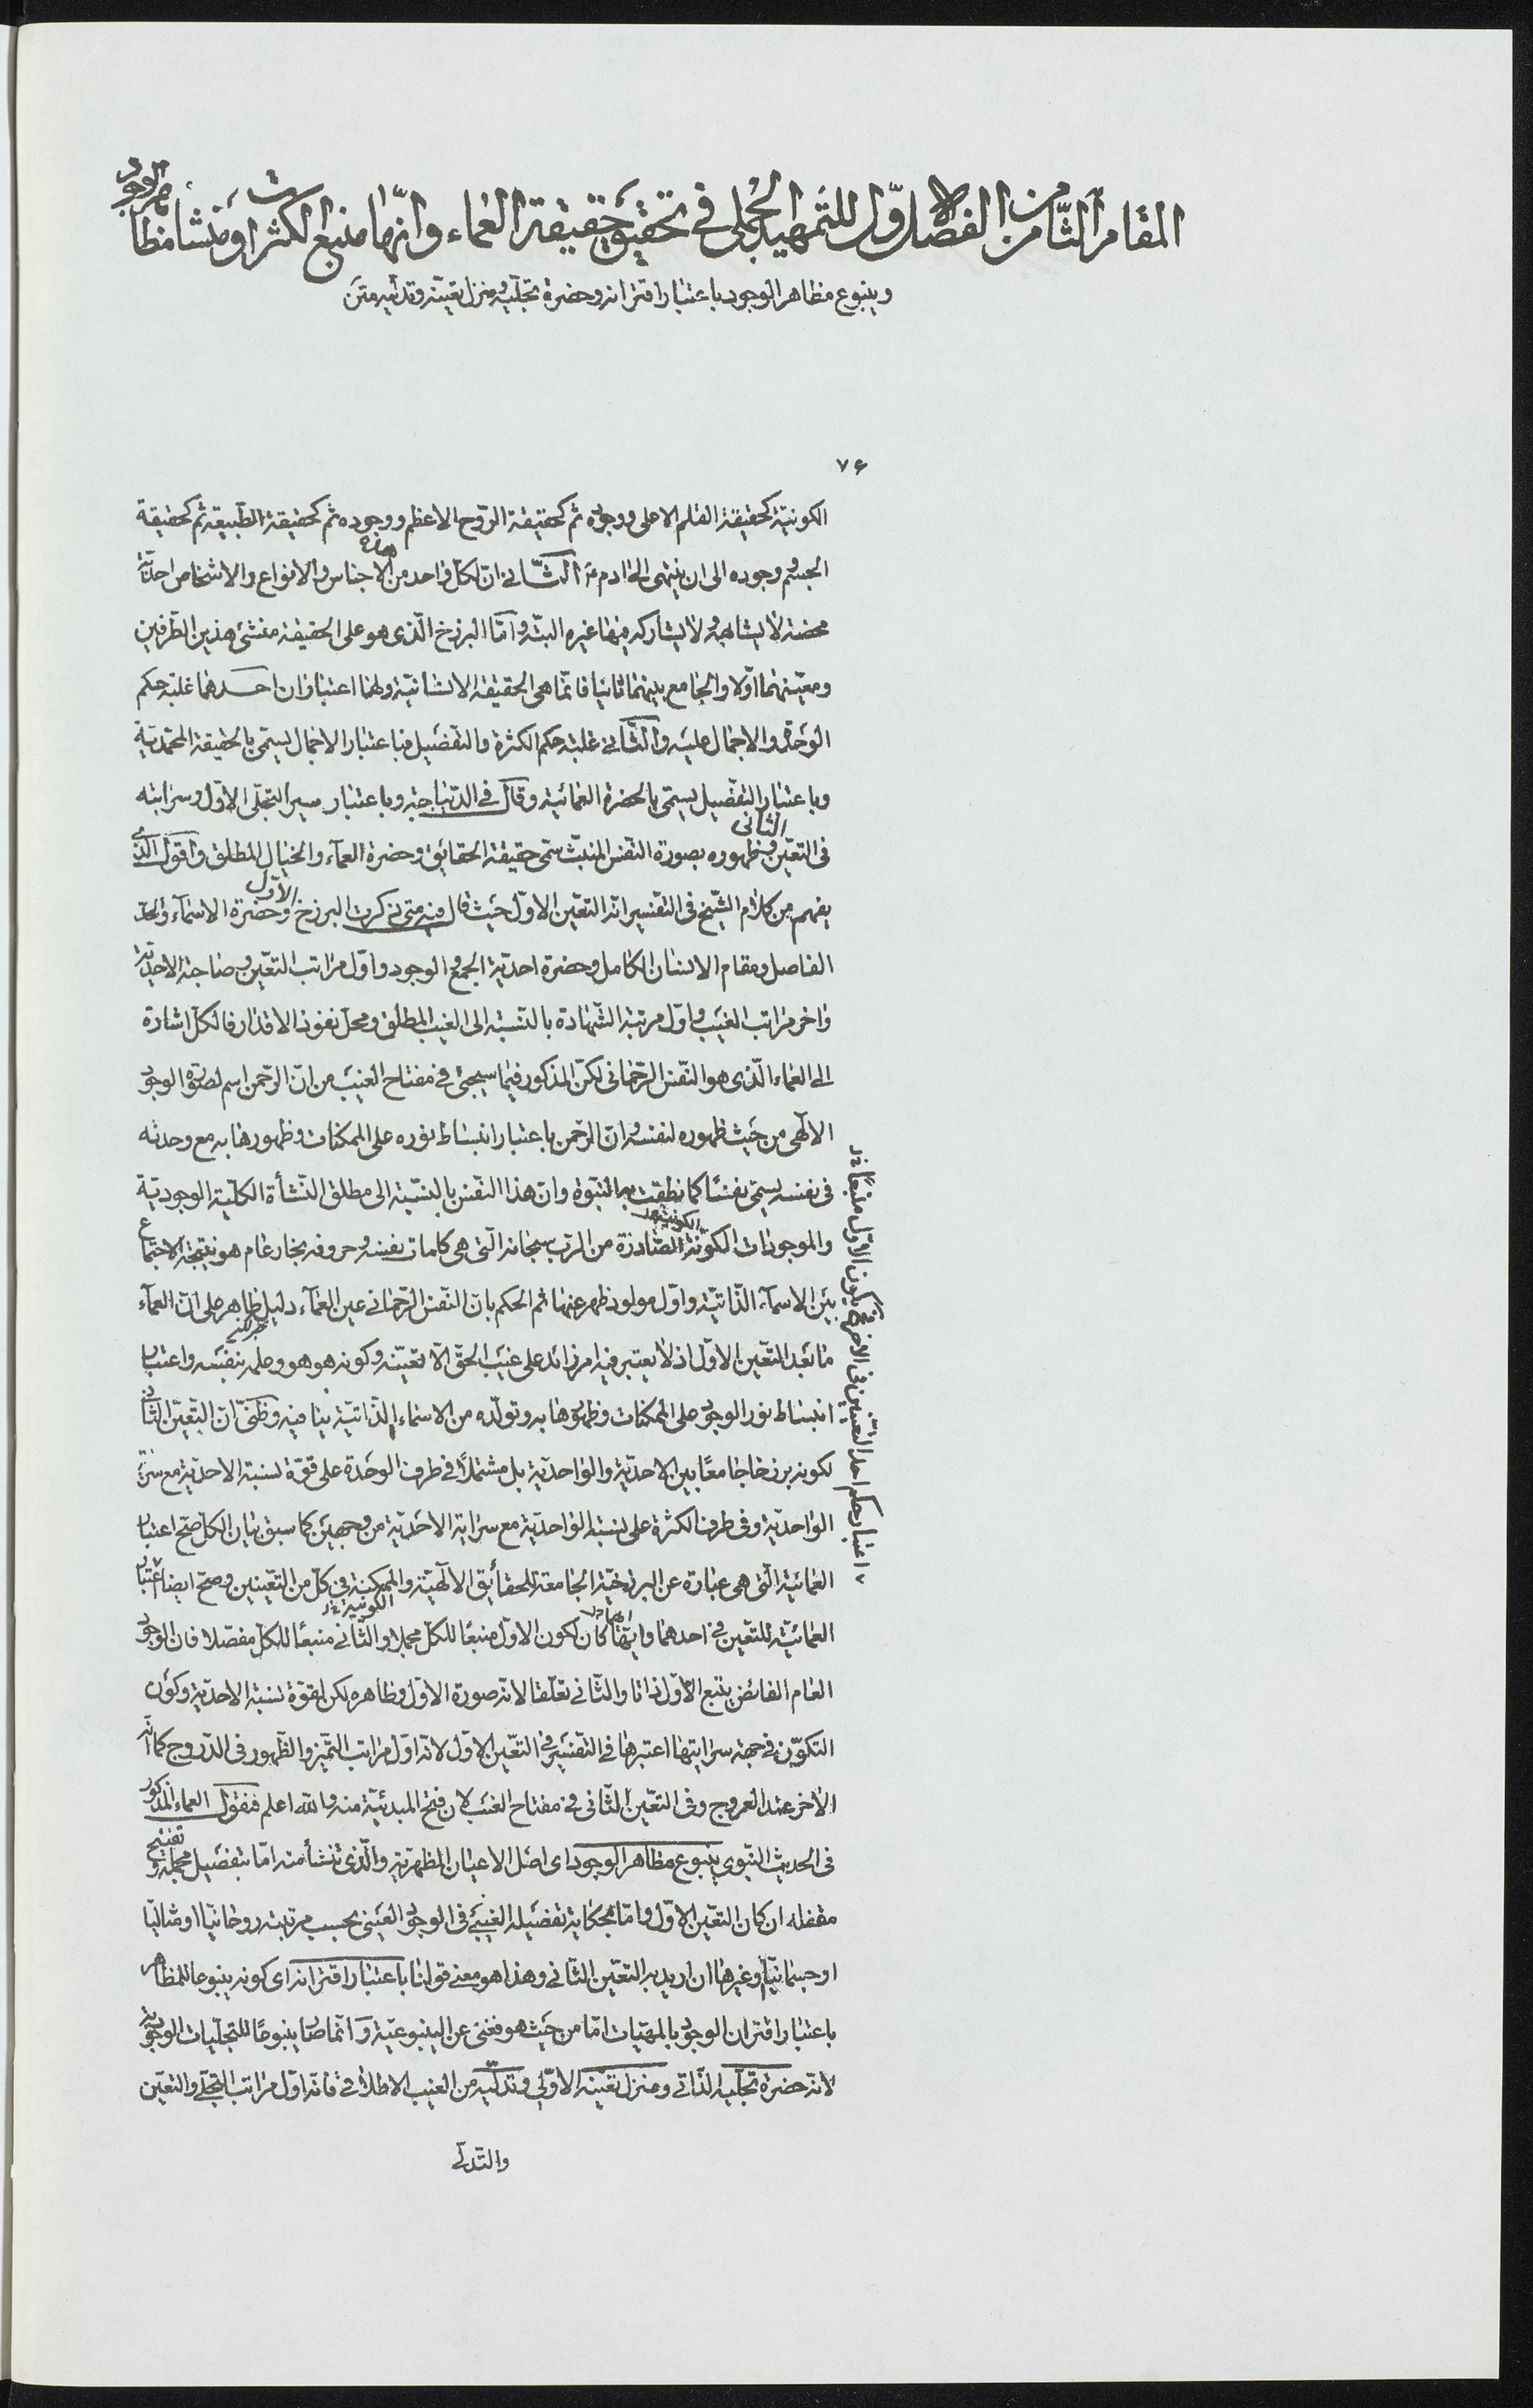 المقام الثامن من الفصل الاول للتمهيد الجملى فى تحقيق حقيقة العماء وانها منبع الكثرات ومنشأ مظاهر الوجود
وينبوع مظاهر الوجود باعتبار اقترانه وحضرة تجليه ومنزل تعينه وتدليه متن
٧۶
الكونيّة كحقيقة القلم الاعلى ووجوده ثم كحقيقة الرّوح الاعظم ووجوده ثم كحقيقة الطّبيعة ثم كحقيقة
الجسم ووجوده الى ان ينتهى الى ادم ع الثّانى انّ لكلّ واحد من الاجناس والانواع والاشخاص احديّة
محضة لا يشابهه ولا يشاركه فيها غيره البتّه وامّا البرزخ الّذى هو على الحقيقة منشئ هذين الطّرفين
ومعيّنهما اوّلا والجامع بينهما ثانيا فانّما هى الحقيقة الانسانيّة ولها اعتباران احدهما غلبة حكم
الوحدة والاجمال عليه والثّانى غلبة حكم الكثرة والتفصيل فباعتبار الاجمال يسمّى بالحقيقة المحمّديّة
وباعتبار التفصيل يسمّى بالحضرة العمائيّة وقال فى الدّيباجة وباعتبار سير التجلّى الاوّل وسرايته
فى التعيّن الثانى وظهوره بصورة النّفس المنبثّ سمّى حقيقة الحقائق وحضرة العمآء والخيال المطلق واقول الّذى
يفهم من كلام الشّيخ فى التفسير انّه التعيّن الاوّل حيث قال فيه متى ذكرت البرزخ الاوّل وحضرة الاسمآء والحدّ
الفاصل ومقام الانسان الكامل وحضرة احديّة الجمع والوجود واوّل مراتب التعيّن وصاحبة الاحديّة
واخر مراتب الغيب واوّل مرتبة الشّهادة بالنّسبة الى الغيب المطلق ومحلّ نفوذ الاقتدار فالكلّ اشارة
الى العماء الّذى هو النّفس الرّحمانى لكنّ المذكور فيما سيجئ فى مفتاح الغيب من انّ الرّحمن اسم لصورة الوجود
الالهى من حيث ظهوره لنفسه وانّ الرّحمن باعتبار انبساط نوره على الممكنات وظهورها به مع وحدته
فى نفسه يسمّى نفسًا كما نطقت به النّبوة وانّ هذا النّفس بالنسبة الى مطلق النّشأة الكليّة الوجوديّة
والموجودات الكونيّة الصّادرة من الرّب سبحانه الّتى هى كلمات نفسه وحروفه بخار عام هو نتيجة الاجتماع
بين الاسمآء الذّاتيّة واوّل مولود ظهر عنها ثم الحكم بانّ النّفس الرّحمانى عين العمآء دليل ظاهر على انّ العمآء
ما بعد التّعيّن الاوّل اذ لا يعتبر فيه امر زائد على غيب الحقّ الّا تعيّنه وكونه هو هو وعلمه بنفسه واعتبار
انبساط نور الوجود على الممكنات وظهورها به وتولّده من الاسماء الذّاتيّة ينافيه وظنّى انّ التّعيّن الثّانى
لكونه برزخا جامعًا بين الاحديّة والواحديّة بل مشتملًا فى طرف الوحدة على قوّة نسبة الاحديّة مع سراية
الواحديّة وفى طرف الكثرة على نسبة الواحديّة مع سراية الاحديّة من وجهين كما سبق بيان الكلّ صحّ اعتبار
العمائيّة الّتى هى عبارة عن البرزخيّة الجامعة للحقائق الالهيّة والممكنة فى كلّ من التّعينين وصحّ ايضا اعتبار
العمائيّة للتّعين فى احدهما وايّهما كان لكون الاوّل منبعًا للكلّ مجملا والثّانى منبعًا للكلّ مفصّلا فان الوجود
العام الفائض يتبع الاوّل ذاتا والثّانى تعلّقا لانّه صورة الاوّل وظاهره لكن لقوّة نسبة الاحديّة وكون
التكوّن فى جهة سرايتها اعتبرها فى التفسير فى التعيّن الاوّل لانّه اوّل مراتب التّميّز والظّهور فى الدّروج كما انّه
الاخر عند العروج وفى التعيّن الثّانى فى مفتاح الغيب لان فتح المبدئيّة منه والله اعلم فنقول العماء المذكور
فى الحديث النّبوى ينبوع مظاهر الوجود اى اصل الاعيان المظهريّة والّذى تنشأ منه امّا بتفصيل مجمله وتفتيح
مقفله ان كان التعيّن الاوّل وامّا بحكاية تفصيله الغيبى فى الوجود العينى بحسب مرتبته روحانيّا او مثاليّا
او جسمانيّا وغيرها ان اريد به التعيّن الثّانى وهذا هو معنى قولنا باعتبار اقترانه اى كونه ينبوعا للمظاهر
باعتبار اقتران الوجود بالمهيّات امّا من حيث هو فغنى عن الينبوعيّة وانّما صار ينبوعًا للتجلّيات الوجوديّة
لانّه حضرة تجلّيه الذّاتى ومنزل تعيّنه الاوّلى وتدلّيه من الغيب الاطلاقى فانّه اوّل مراتب التجلّى والتعيّن
والتدلّى